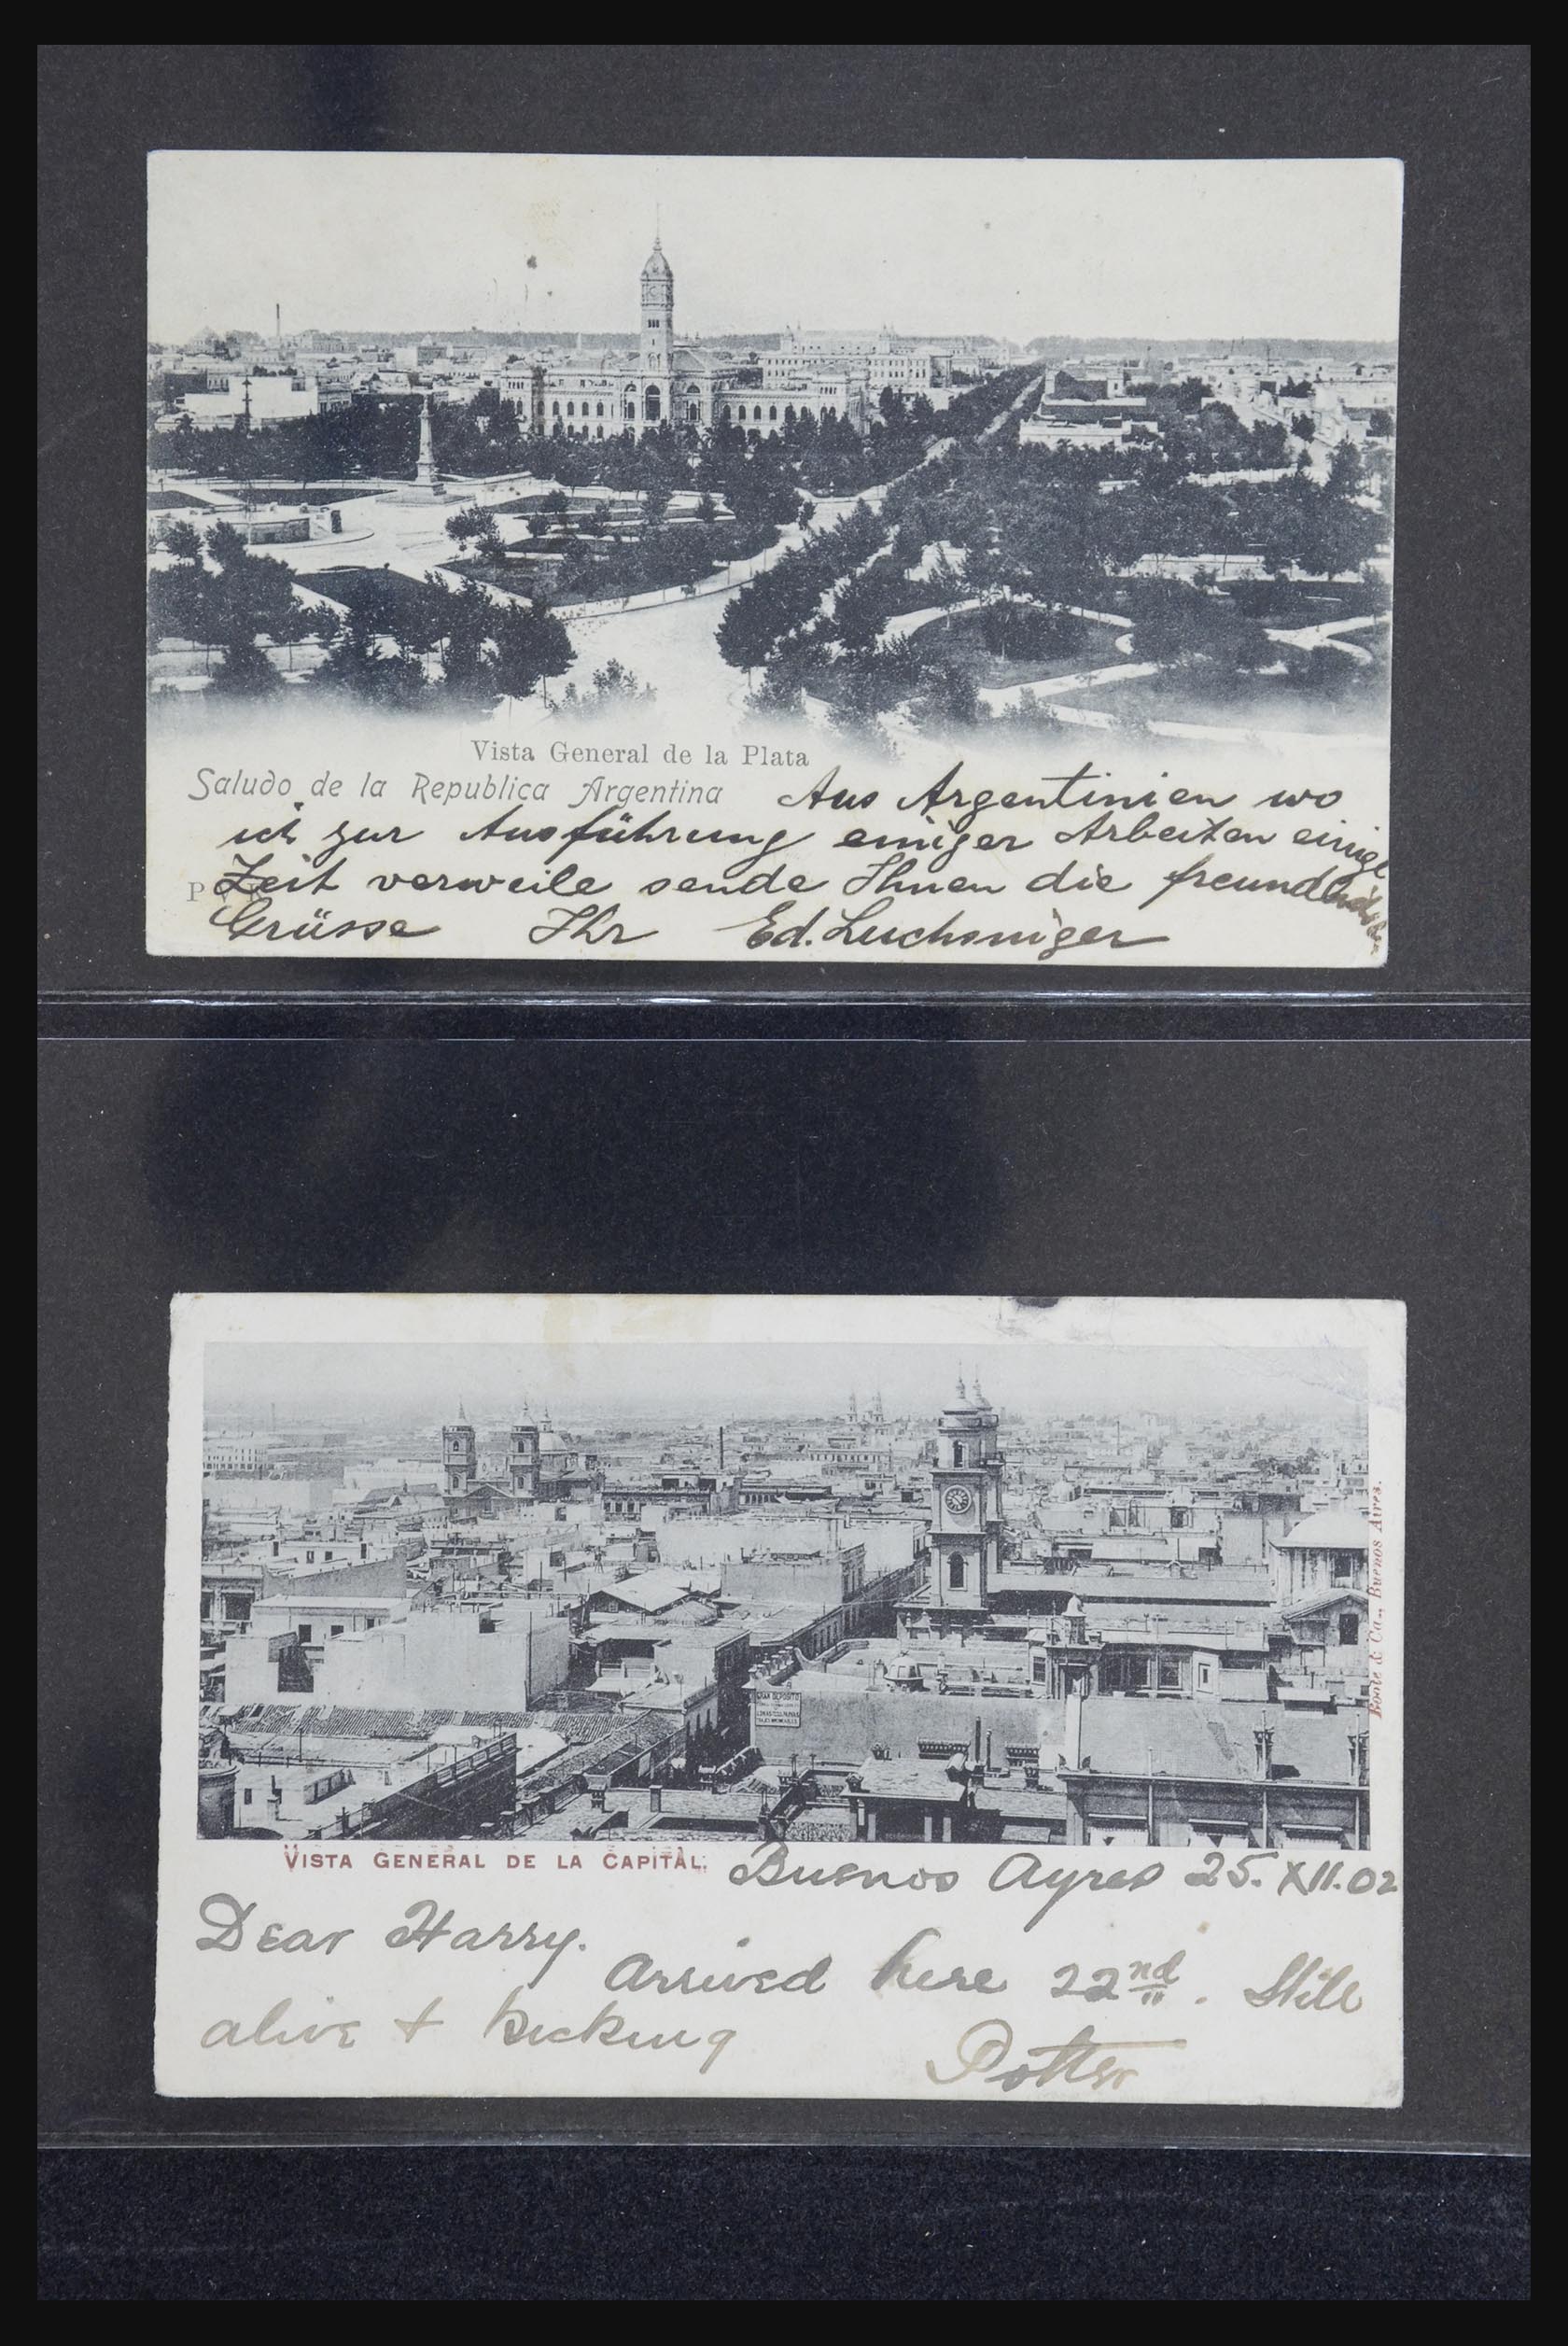 Vista General de la Plata
Saludo de la Republica Argentina
Aus Argentinien wo
ich zur Ausführung einiger Arbeiten einige
Zeit verweile sende Ihnen die freundlichsten
Grüsse Ihr Ed. Luchsinger
GRAN DEPOSITO
VISTA GENERAL DE LA CAPITAL.
Boote & Ca., Buenos Aires.
Buenos Ayres 25. XII. 02
Dear Harry.
Arrived here 22nd. Still
alive + kicking
Potter